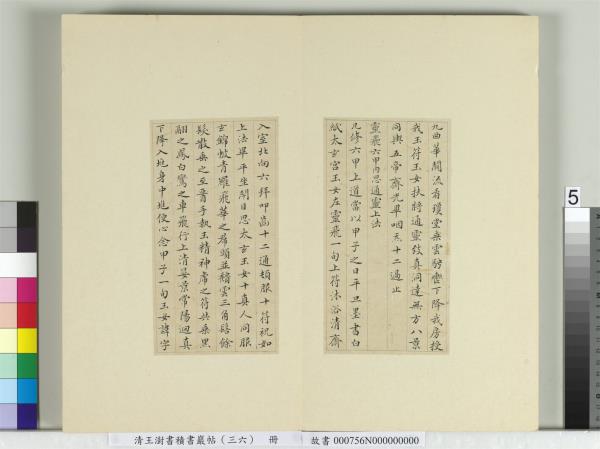 九曲華關流看瓊堂乘雲駉轡下降我房授
我玉符玉女扶將通靈致真洞達無方八景
同輿五帝齊光畢咽炁十二過止
靈飛六甲內思通靈上法
凡修六甲上道當以甲子之日平旦墨書白
紙太玄宮玉女左靈飛一旬上符沐浴清齋
入室北向六拜叩齒十二通頓服十符祝如
上法畢平坐閉目思太玄玉女十真人同服
玄錦帔青羅飛華之帬頭並頹雲三角髻餘
髮散垂之至要手執玉精神虎之符共乘黑
翮之鳳白鸞之車飛行上清晏景常陽迴真
下降入兆身中兆便心念甲子一旬玉女諱字
清王澍書積書巖帖（三六） 冊
故書 000756N000000000
5